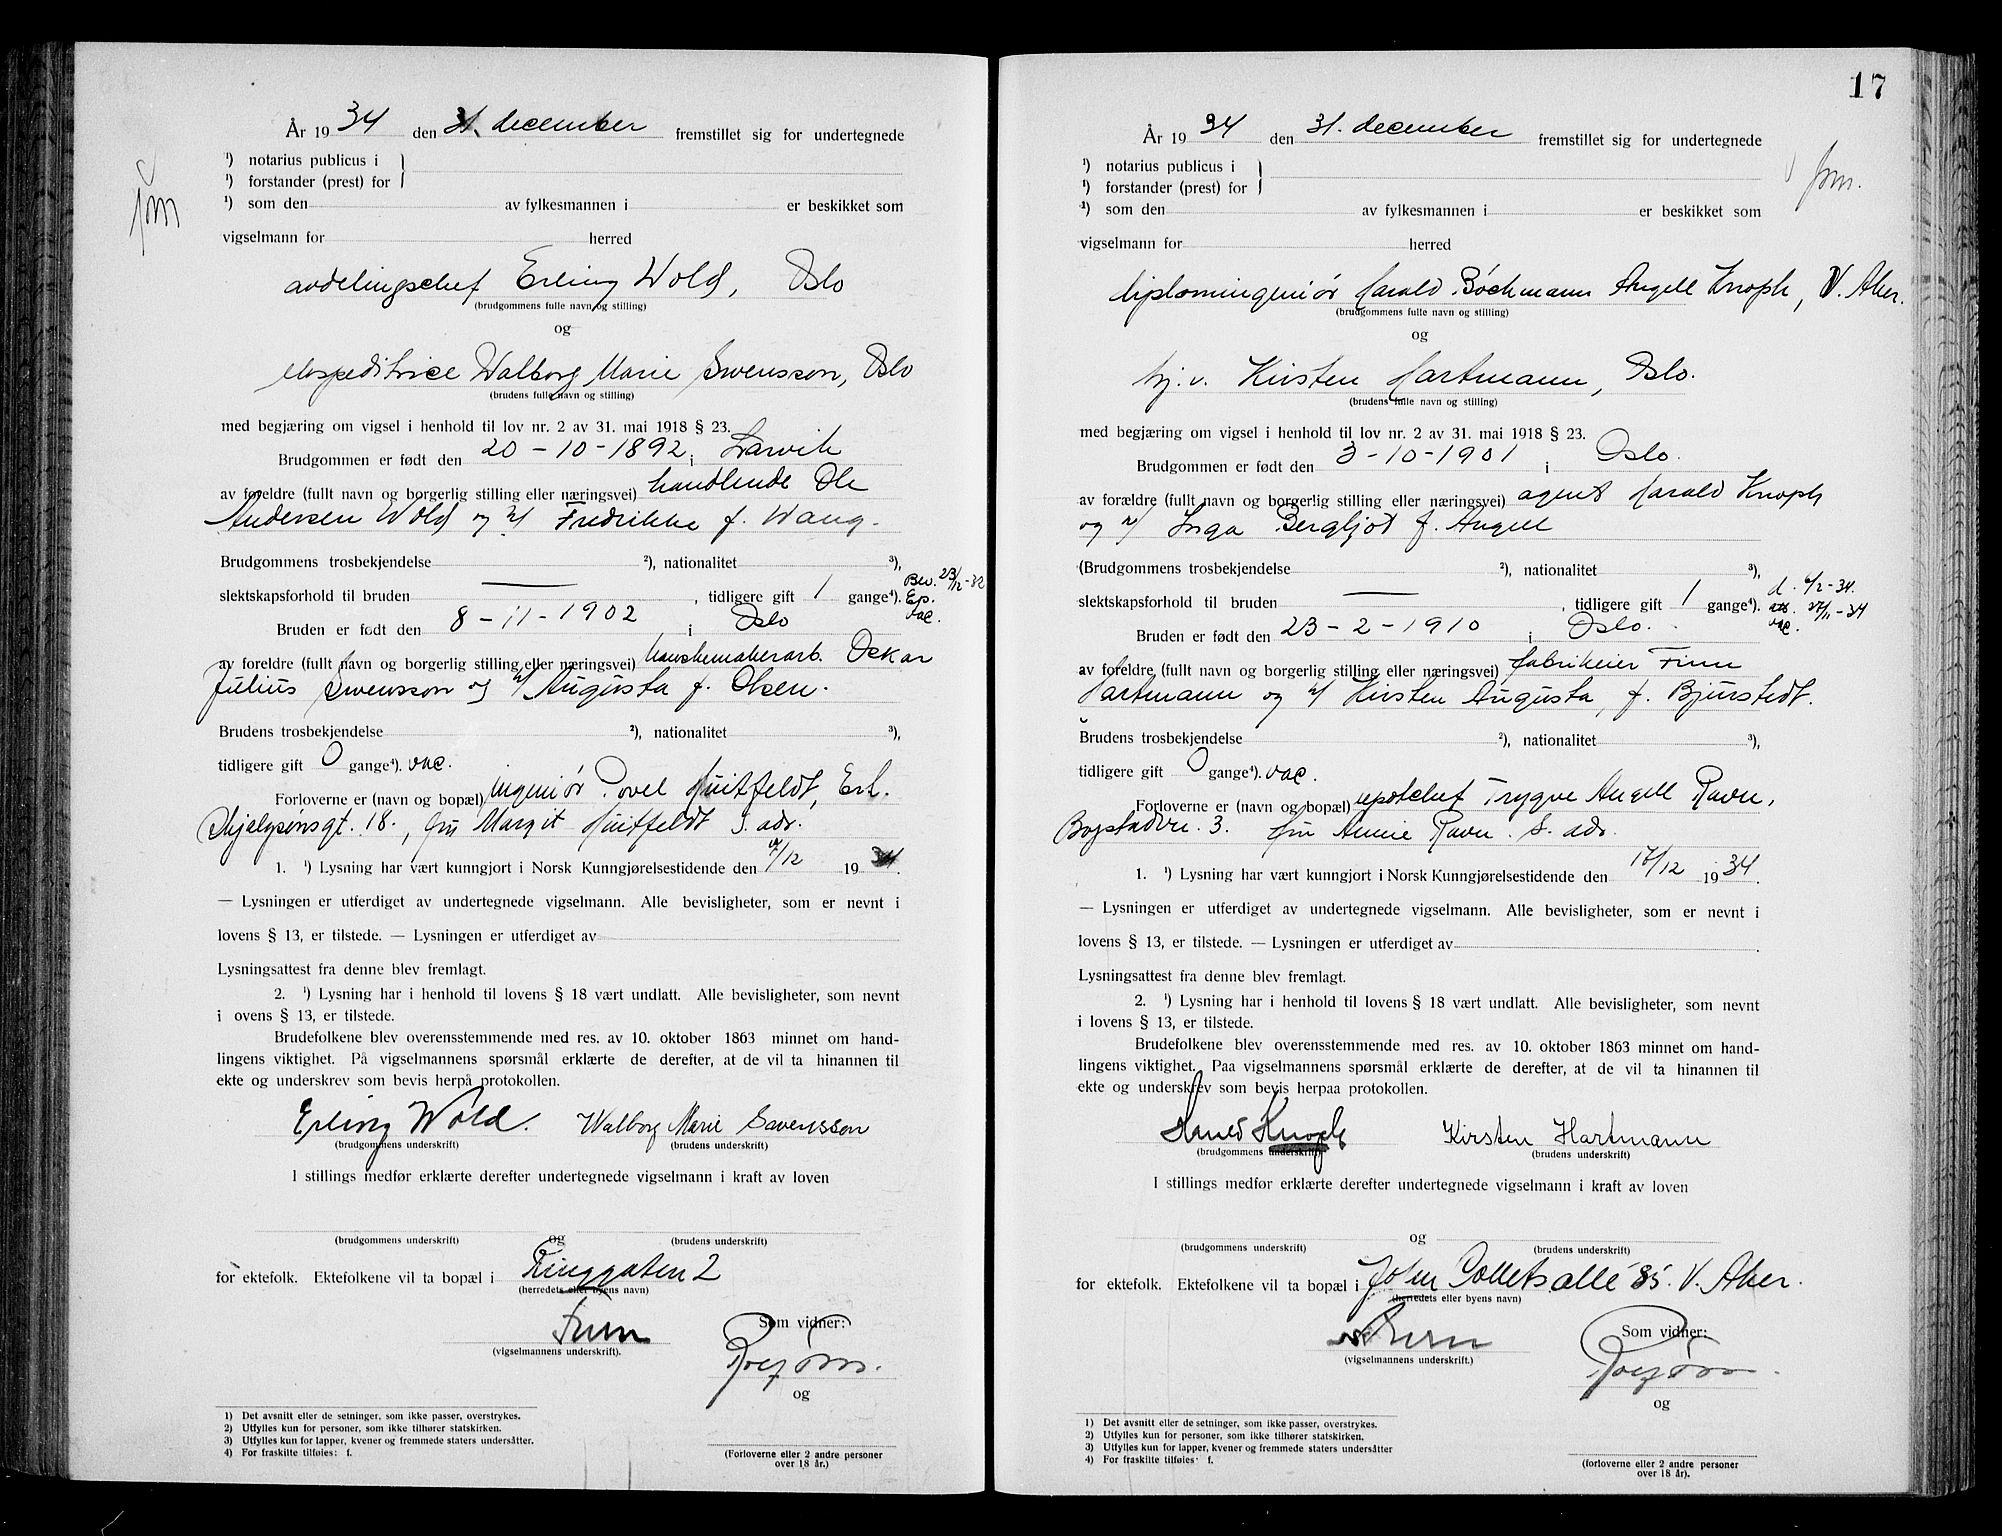 År 19 34 den 31. december fremstillet sig for undertegnede
¹) notarius publicus i
¹) forstander (prest) for
jm
¹) som den av fylkesmannen i er beskikket som
vigselmann for herred
avdelingschef Erling Wold, Oslo
(brudgommens fulle navn og stilling)
og
ekspeditrice Walborg Marie Swensson, Oslo
(brudens fulle navn og stilling)
med begjæring om vigsel i henhold til lov nr. 2 av 31. mai 1918 § 23.
Brudgommen er født den 20-10-1892 i Larvik
av foreldre (fullt navn og borgerlig stilling eller næringsvei) handlende Ole
Andersen Wold og h/ Fredrikke f. Wang.
Brudgommens trosbekjendelse ²), nationalitet ³),
slektskapsforhold til bruden — , tidligere gift 1 gange⁴). Bev. 23/12-32
Ep.
vac.
Bruden er født den 8-11-1902 i Oslo
av foreldre (fullt navn og borgerlig stilling eller næringsvei) hanskemakerarb. Oskar
Julius Swensson og h/ Augusta f. Olsen.
Brudens trosbekjendelse ²), nationalitet ³),
tidligere gift 0 gange⁴). vac.
Forloverne er (navn og bopæl) ingeniør Povel Huitfeldt, Erl.
Skjalgsønsgt. 18., fru Margit Huitfeldt s. adr.
1. ¹) Lysning har vært kunngjort i Norsk Kunngjørelsestidende den /12 19 34.
— Lysningen er utferdiget av undertegnede vigselmann. Alle bevisligheter, som er nevnt i
lovens § 13, er tilstede. — Lysningen er utferdiget av
Lysningsattest fra denne blev fremlagt.
2. ¹) Lysning har i henhold til lovens § 18 vært undlatt. Alle bevisligheter, som nevnt
i ovens § 13, er tilstede.
Brudefolkene blev overensstemmende med res. av 10. oktober 1863 minnet om hand-
lingens viktighet. På vigselmannens spørsmål erklærte de derefter, at de vil ta hinannen til
ekte og underskrev som bevis herpå protokollen.
Erling Wold. Walborg Marie Swensson
(brudgommens underskrift) (brudens underskrift)
I stillings medfør erklærte derefter undertegnede vigselmann i kraft av loven
og
(brudgommens underskrift) (brudens underskrift)
for ektefolk. Ektefolkene vil ta bopæl i Ringgaten 2
(herredets eller byens navn)
Som vidner:
(vigselmannens underskrift).
og
1) Det avsnitt eller de setninger, som ikke passer, overstrykes.
2) Utfylles kun for personer, som ikke tilhører statskirken.
3) Utfylles kun for lapper, kvener og fremmede staters undersåtter.
4) For fraskilte tilføies: f.
(Forloverne eller 2 andre personer
over 18 år.)
17
År 19 34 den 31. december fremstillet sig for undertegnede
¹) notarius publicus i
¹) forstander (prest) for
jm.
¹) som den av fylkesmannen i er beskikket som
vigselmann for herred
diplomingeniør Harald Bøckmann Angell Knoph, V. Aker.
(brudgommens fulle navn og stilling)
og
hj.v. Kirsten Hartmann, Oslo.
(brudens fulle navn og stilling)
med begjæring om vigsel i henhold til lov nr. 2 av 31. mai 1918 § 23.
Brudgommen er født den 3-10-1901 i Oslo.
av forældre (fullt navn og borgerlig stilling eller næringsvei) agent Harald Knoph
og h/ Inga Bergljot f. Angell
(Brudgommens trosbekjendelse ²), nationalitet ³),
slektskapsforhold til bruden — , tidligere gift 1 gange⁴). d. 6/2-34.
27/11-34
vac.
Bruden er født den 23-2-1910 i Oslo.
av foreldre (fullt navn og borgerlig stilling eller næringsvei) fabrikeier Finn
Hartmann og h/ Kirsten Augusta, f. Bjurstedt.
Brudens trosbekjendelse ²), nationalitet ³),
tidligere gift 0 gange⁴). vac.
Forloverne er (navn og bopæl) Trygve Angell Ravn,
Bogstadvn. 3. fru Annie Ravn. s. adr.
1. ¹) Lysning har vært kunngjort i Norsk Kunngjørelsestidende den 17/12 19 34.
— Lysningen er utferdiget av undertegnede vigselmann. Alle bevisligheter, som er nevnt i
lovens § 13, er tilstede. — Lysningen er utferdiget av
Lysningsattest fra denne blev fremlagt.
2. ¹) Lysning har i henhold til lovens § 18 vært undlatt. Alle bevisligheter, som nevnt
i lovens § 13, er tilstede.
Brudefolkene blev overensstemmende med res. av 10. oktober 1863 minnet om hand-
lingens viktighet. Paa vigselmannens spørsmål erklærte de derefter, at de vil ta hinannen til
ekte og underskrev som bevis herpaa protokollen.
Harald Knoph Kirsten Hartmann
(brudgommens underskrift) (brudens underskrift)
I stillings medfør erklærte derefter undertegnede vigselmann i kraft av loven
og
(brudgommens underskrift) (brudens underskrift)
for ektefolk. Ektefolkene vil ta bopæl i John Colletsallé 85. V. Aker.
(herredets eller byens navn)
Som vidner:
(vigselmannens underskrift.)
og
1) Det avsnitt eller de setninger, som ikke passer, overstrykes.
2) Utfylles kun for personer, som ikke tilhører statskirken.
3) Utfylles kun for lapper, kvener og fremmede staters undersåtter
4) For fraskilte tilføies· f.
(forloverne eller 2 andre personer
over 18 år).